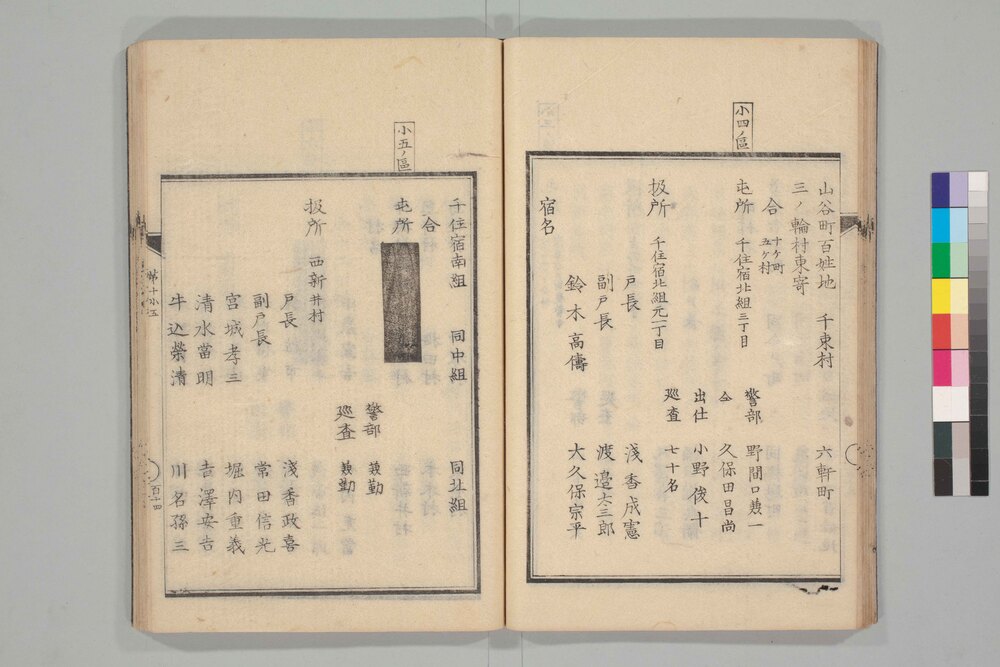 小四ノ區
山谷町百姓地　千束村　六軒町
三ノ輪村東寄
合　十ケ町
五ケ村
屯所　千住宿北組三丁目　警部　野間口兼一
仝　久保田昌尚
出仕　小野俊十
巡査　七十名
扱所　千住宿北組元一丁目
戸長　浅香成憲
副戸長　渡邉六三郎
鈴木高儔　大久保宗平
宿名
小五ノ區
千住宿南組　同中組　同北組
合
屯所
警部　兼勤
巡査　兼勤
扱所　西新井村
戸長　浅香政喜
副戸長　常田信光
宮城孝三　堀内重義
清水當明　吉澤安吉
牛込榮清　川名孫三
第十小五
百十四